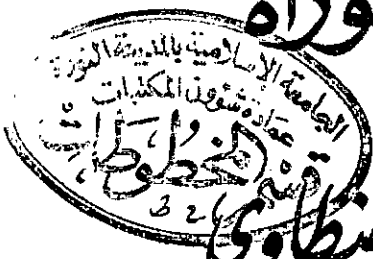 وراه
الجامعة الإسلامية بالمدينة المنورة
عمادة شؤون المكتبات
قسم المخطوطات
نطاوي